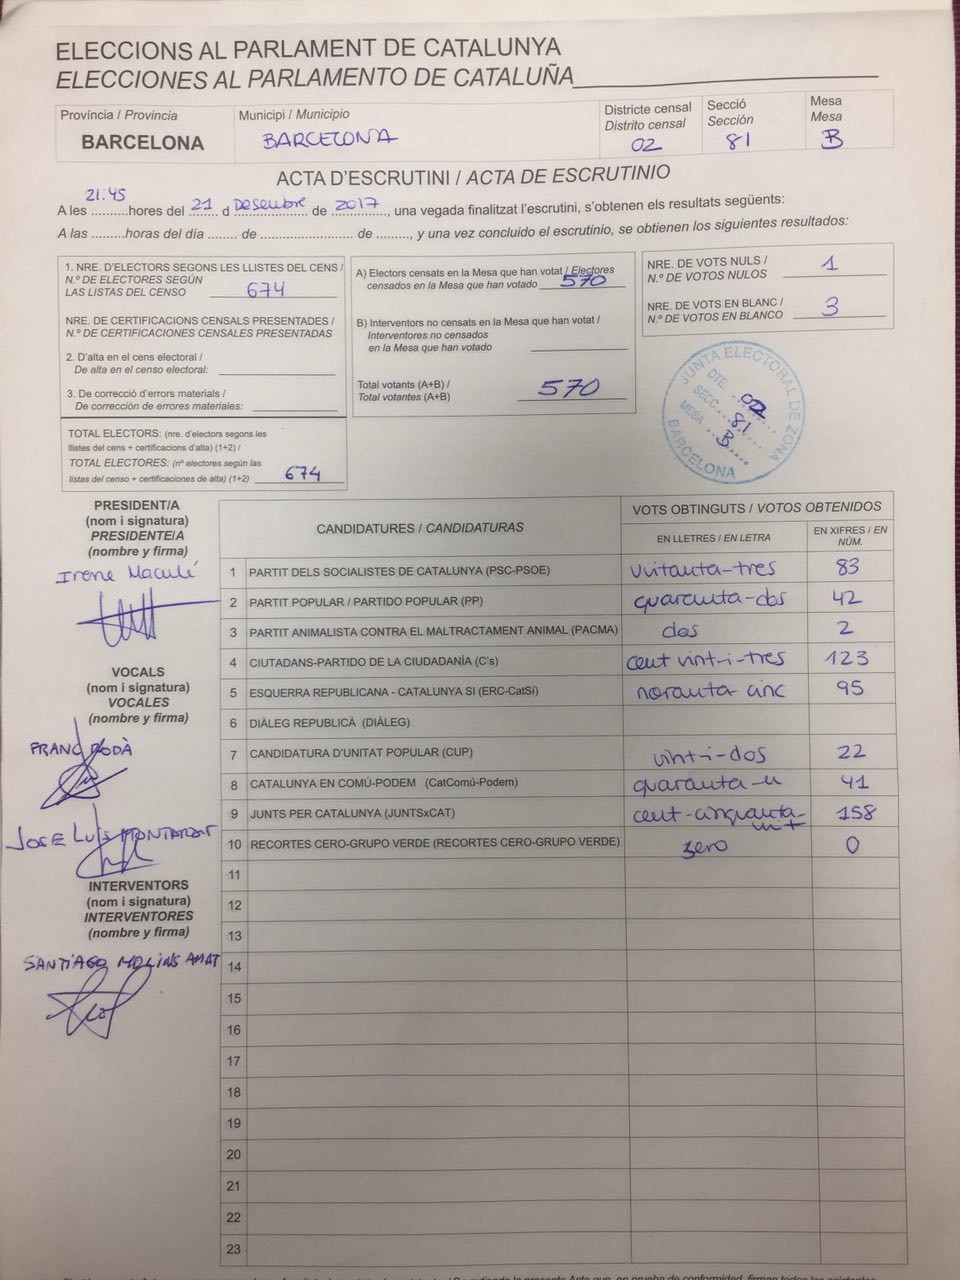 ELECCIONS AL PARLAMENT DE CATALUNYA
ELECCIONES AL PARLAMENTO DE CATALUÑA
Província / Provincia
BARCELONA
Municipi / Municipio
BARCELONA
Districte censal
Distrito censal
02
Secció
Sección
81
Mesa
Mesa
B
ACTA D'ESCRUTINI / ACTA DE ESCRUTINIO
21:45
A les .........hores del 21 d Desembre de 2017, una vegada finalitzat l'escrutini, s'obtenen els resultats següents:
A las .........horas del día ....... de ....................... de ........, y una vez concluido el escrutinio, se obtienen los siguientes resultados:
1. NRE. D'ELECTORS SEGONS LES LLISTES DEL CENS /
N.º DE ELECTORES SEGÚN
LAS LISTAS DEL CENSO 674
NRE. DE CERTIFICACIONS CENSALS PRESENTADES /
N.º DE CERTIFICACIONES CENSALES PRESENTADAS
2. D'alta en el cens electoral /
De alta en el censo electoral:
3. De correcció d'errors materials /
De corrección de errores materiales:
TOTAL ELECTORS: (nre. d'electors segons les
llistes del cens + certificacions d'alta) (1+2) /
TOTAL ELECTORES: (nº electores según las
listas del censo + certificaciones de alta) (1+2) 674
A) Electors censats en la Mesa que han votat / Electores
censados en la Mesa que han votado 570
B) Interventors no censats en la Mesa que han votat /
Interventores no censados
en la Mesa que han votado
Total votants (A+B) /
Total votantes (A+B) 570
NRE. DE VOTS NULS /
N.º DE VOTOS NULOS 1
NRE. DE VOTS EN BLANC /
N.º DE VOTOS EN BLANCO 3
JUNTA ELECTORAL DE ZONA
DTE. 02
SECC. 81
MESA B
BARCELONA
PRESIDENT/A
(nom i signatura)
PRESIDENTE/A
(nombre y firma)
Irene Maculé
VOCALS
(nom i signatura)
VOCALES
(nombre y firma)
FRANC RODÀ
JOSE LUIS
INTERVENTORS
(nom i signatura)
INTERVENTORES
(nombre y firma)
SANTIAGO MOLINS AMAT
CANDIDATURES / CANDIDATURAS
VOTS OBTINGUTS / VOTOS OBTENIDOS
EN LLETRES / EN LETRA
EN XIFRES / EN NÚM.
1 PARTIT DELS SOCIALISTES DE CATALUNYA (PSC-PSOE) vuitanta-tres 83
2 PARTIT POPULAR / PARTIDO POPULAR (PP) quaranta-dos 42
3 PARTIT ANIMALISTA CONTRA EL MALTRACTAMENT ANIMAL (PACMA) dos 2
4 CIUTADANS-PARTIDO DE LA CIUDADANÍA (C's) cent vint-i-tres 123
5 ESQUERRA REPUBLICANA - CATALUNYA SI (ERC-CatSI) noranta cinc 95
6 DIÀLEG REPUBLICÀ (DIÀLEG)
7 CANDIDATURA D'UNITAT POPULAR (CUP) vint-i-dos 22
8 CATALUNYA EN COMÚ-PODEM (CatComú-Podem) quaranta-u 41
9 JUNTS PER CATALUNYA (JUNTSxCAT) cent-cinquanta-vuit 158
10 RECORTES CERO-GRUPO VERDE (RECORTES CERO-GRUPO VERDE) zero 0
11
12
13
14
15
16
17
18
19
20
21
22
23